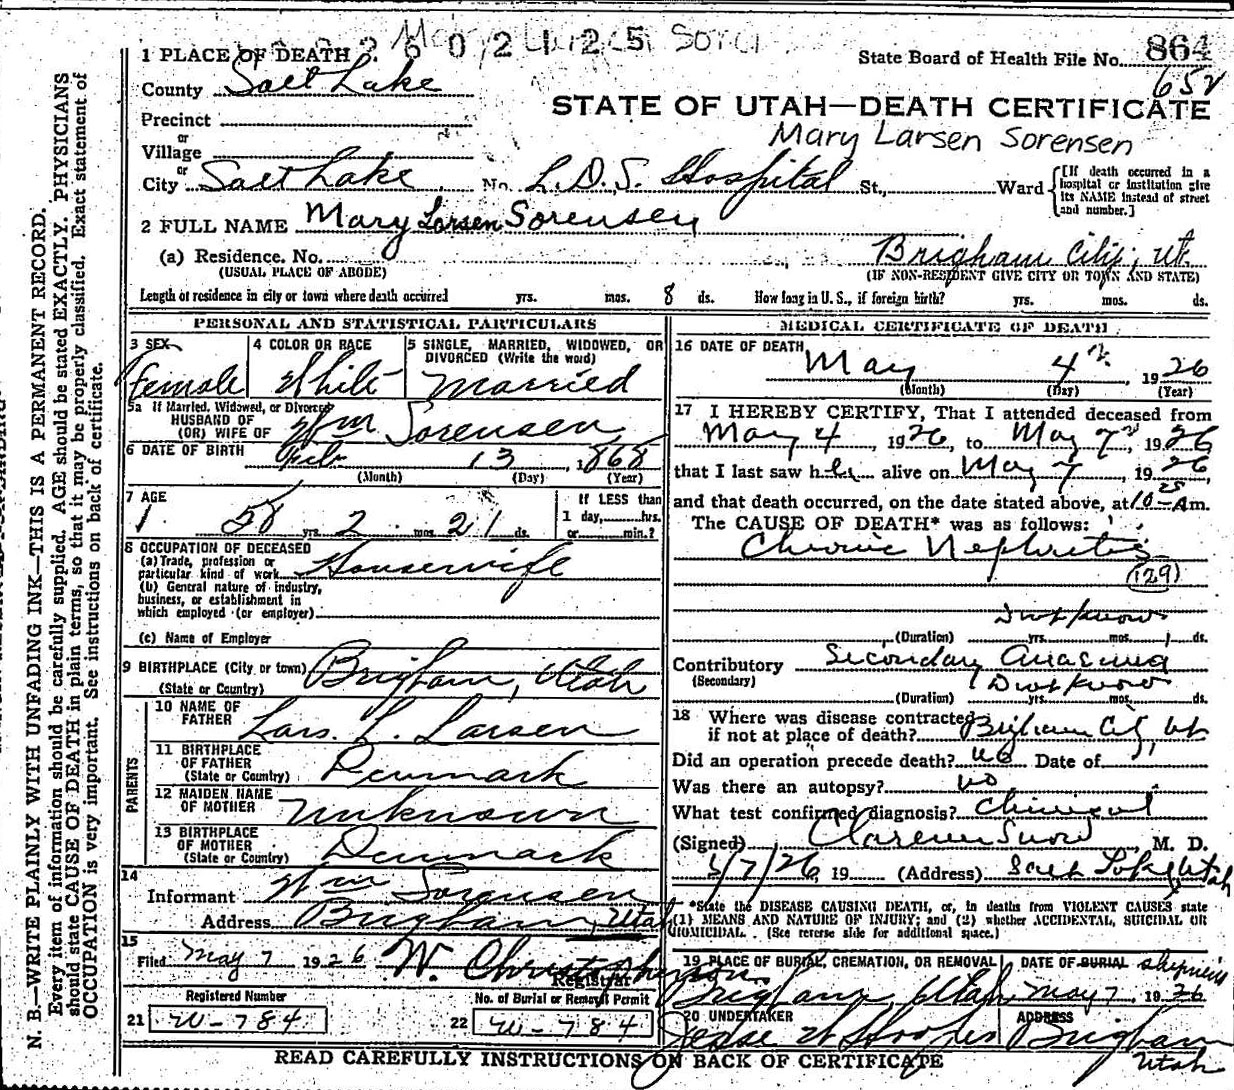 2602125
1 PLACE OF DEATH
State Board of Health File No. 864
652
County Salt Lake
STATE OF UTAH—DEATH CERTIFICATE
Precinct
or
Village
Mary Larsen Sorensen
or
City Salt Lake No. L.D.S. Hospital St., Ward
[If death occurred in a
hospital or institution give
its NAME instead of street
and number.]
2 FULL NAME Mary Larsen Sorensen
(a) Residence. No. Brigham City, Ut.
(USUAL PLACE OF ABODE)
(IF NON-RESIDENT GIVE CITY OR TOWN AND STATE)
Length of residence in city or town where death occurred yrs. mos. 8 ds. How long in U. S., if foreign birth? yrs. mos. ds.
PERSONAL AND STATISTICAL PARTICULARS
3 SEX
Female
4 COLOR OR RACE
White
5 SINGLE, MARRIED, WIDOWED, OR
DIVORCED (Write the word)
Married
5a If Married, Widowed, or Divorced
HUSBAND OF
(OR) WIFE OF Wm Sorensen
6 DATE OF BIRTH Feb 13, 1868
(Month) (Day) (Year)
7 AGE
58 yrs. 2 mos. 21 ds.
If LESS than
1 day, hrs.
or min.?
8 OCCUPATION OF DECEASED
(a) Trade, profession or
particular kind of work Housewife
(b) General nature of industry,
business, or establishment in
which employed (or employer)
(c) Name of Employer
9 BIRTHPLACE (City or town) Brigham, Utah
(State or Country)
PARENTS
10 NAME OF
FATHER Lars. L. Larsen
11 BIRTHPLACE
OF FATHER
(State or Country) Denmark
12 MAIDEN NAME
OF MOTHER Unknown
13 BIRTHPLACE
OF MOTHER
(State or Country) Denmark
14
Informant Wm Sorensen
Address Brigham, Utah
15
Filed May 7 1926 W. Christopherson
Registrar
Registered Number
21 W-784
No. of Burial or Removal Permit
22 W-784
MEDICAL CERTIFICATE OF DEATH
16 DATE OF DEATH
May 4, 1926
(Month) (Day) (Year)
17 I HEREBY CERTIFY, That I attended deceased from
May 4, 1926, to May 7, 1926
that I last saw her alive on May 7, 1926
and that death occurred, on the date stated above, at 10 25 Am.
The CAUSE OF DEATH* was as follows:
Chronic Nephritis
(129)
Dont know
(Duration) yrs. mos. ds.
Contributory Secondary Anaemia
(Secondary) Dont know
(Duration) yrs. mos. ds.
18 Where was disease contracted
if not at place of death? Brigham City, Ut
Did an operation precede death? no Date of
Was there an autopsy? no
What test confirmed diagnosis? Clinical
(Signed) Clarence Snow, M. D.
5/7/26, 19 (Address) Salt Lake, Utah
*State the DISEASE CAUSING DEATH, or, in deaths from VIOLENT CAUSES state
(1) MEANS AND NATURE OF INJURY; and (2) whether ACCIDENTAL, SUICIDAL OR
HOMICIDAL. (See reverse side for additional space.)
19 PLACE OF BURIAL, CREMATION, OR REMOVAL
Brigham, Utah
DATE OF BURIAL
May 7, 1926
20 UNDERTAKER
ADDRESS
Brigham
Utah
READ CAREFULLY INSTRUCTIONS ON BACK OF CERTIFICATE
N. B.—WRITE PLAINLY WITH UNFADING INK—THIS IS A PERMANENT RECORD.
Every item of information should be carefully supplied. AGE should be stated EXACTLY. PHYSICIANS
should state CAUSE OF DEATH in plain terms, so that it may be properly classified. Exact statement of
OCCUPATION is very important. See instructions on back of certificate.